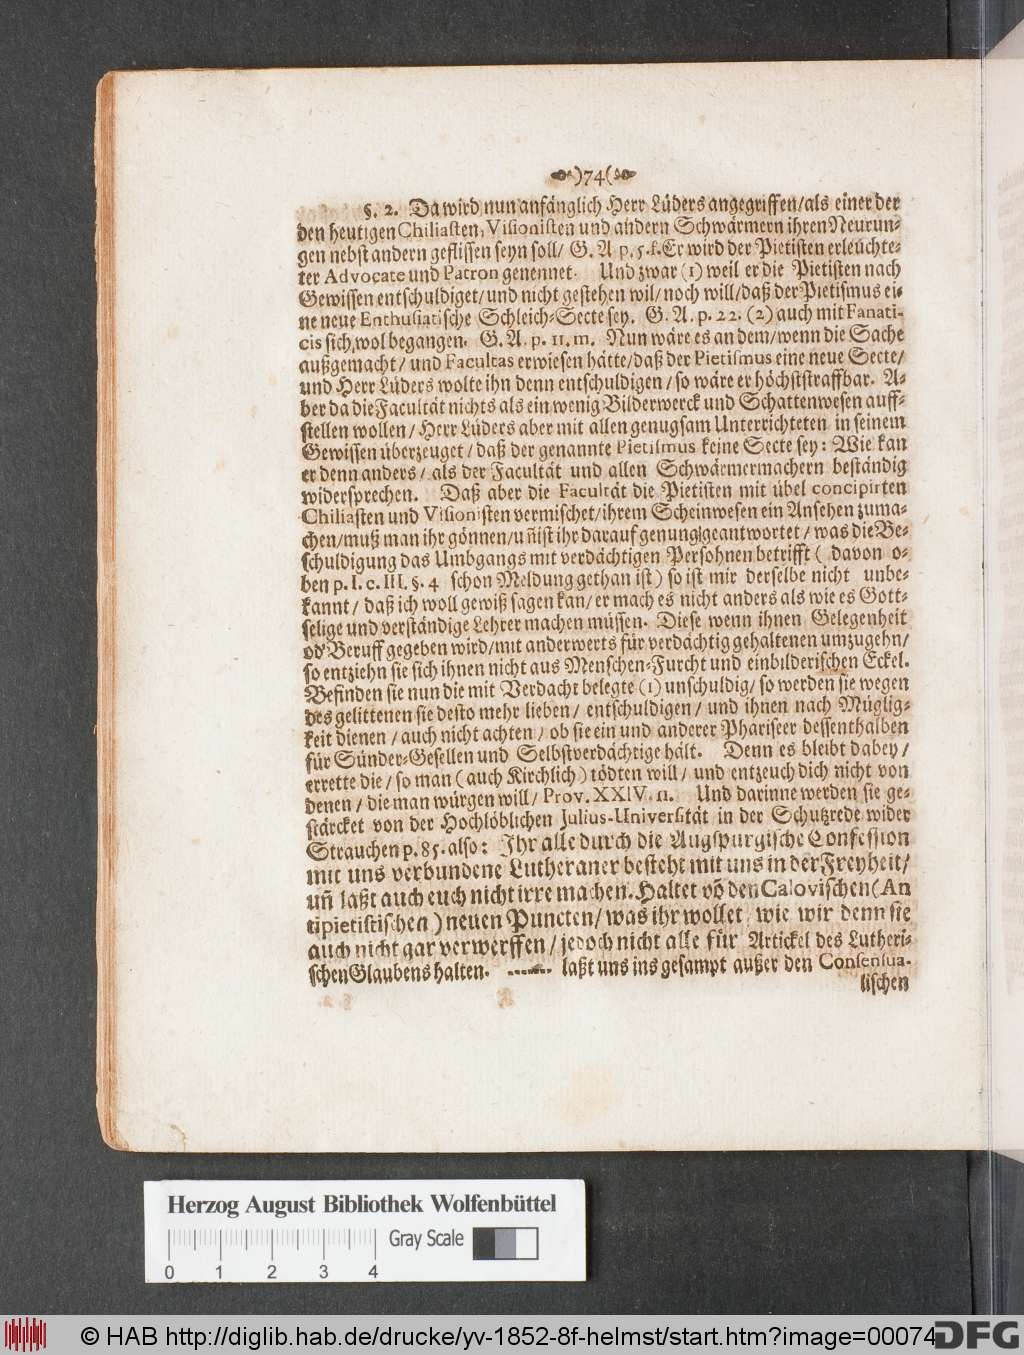 )74(
§. 2. Da wird nun anfänglich Herr Lüders angegriffen/als einer der
den heutigen Chiliasten, Visionisten und andern Schwärmern ihren Neurun-
gen nebst andern geflissen seyn soll/ G. A p. 5. f. Er wird der Pietisten erleuchte-
ter Advocate und Patron genennet. Und zwar (1) weil er die Pietisten nach
Gewissen entschuldiget/und nicht gestehen wil/noch will/daß der Pietismus ei-
ne neue Enthusiatische Schleich-Secte sey. G. A. p. 22. (2) auch mit Fanati-
cis sich, wol begangen. G. A. p. 11. m. Nun wäre es an dem/wenn die Sache
außgemacht/ und Facultas erwiesen hätte/daß der Pietismus eine neue Secte/
und Herr Lüders wolte ihn denn entschuldigen/so wäre er höchststraffbar. A-
ber da die Facultät nichts als ein wenig Bilderwerck und Schattenwesen auff-
stellen wollen/Herr Lüders aber mit allen genugsam Unterrichteten in seinem
Gewissen überzeuget/daß der genannte Pietismus keine Secte sey: Wie kan
er denn anders/ als der Facultät und allen Schwärmermachern beständig
widersprechen. Daß aber die Facultät die Pietisten mit übel concipirten
Chiliasten und Visionisten vermischet/ihrem Scheinwesen ein Ansehen zuma-
chen/muß man ihr gönnen/uñ ist ihr darauf genung geantwortet/was die Be-
schuldigung das Umbgangs mit verdächtigen Persohnen betrifft ( davon o-
ben p. I. c. III. §. 4 schon Meldung gethan ist) so ist mir derselbe nicht unbe-
kannt/ daß ich woll gewiß sagen kan/er mach es nicht anders als wie es Gott-
selige und verständige Lehrer machen müssen. Diese wenn ihnen Gelegenheit
od' Beruff gegeben wird/mit anderwerts für verdächtig gehaltenen umzugehn/
so entziehn sie sich ihnen nicht aus Menschen-Furcht und einbilderischen Eckel.
Befinden sie nun die mit Verdacht belegte (1) unschuldig/ so werden sie wegen
des gelittenen sie desto mehr lieben/ entschuldigen/ und ihnen nach Müglig-
keit dienen/ auch nicht achten/ ob sie ein und anderer Phariseer dessenthalben
für Sünder-Gesellen und Selbstverdächtige hält. Denn es bleibt dabey/
errette die/so man (auch Kirchlich) tödten will/ und entzeuch dich nicht von
denen/die man würgen will/ Prov. XXIV. 11. Und darinne werden sie ge-
stärcket von der Hochlöblichen Julius-Universität in der Schutzrede wider
Strauchen p. 85. also: Ihr alle durch die Augspurgische Confession
mit uns verbundene Lutheraner besteht mit uns in der Freyheit/
uñ laßt auch euch nicht irre machen. Haltet võ den Calovischen (An
tipietistischen) neuen Puncten/was ihr wollet/ wie wir denn sie
auch nicht gar verwerffen/jedoch nicht alle für Artickel des Lutheri-
schen Glaubens halten. ------- laßt uns ins gesampt außer den Consensua-
lischen
Herzog August Bibliothek Wolfenbüttel
Gray Scale
0 1 2 3 4
© HAB http://diglib.hab.de/drucke/yv-1852-8f-helmst/start.htm?image=00074
DFG